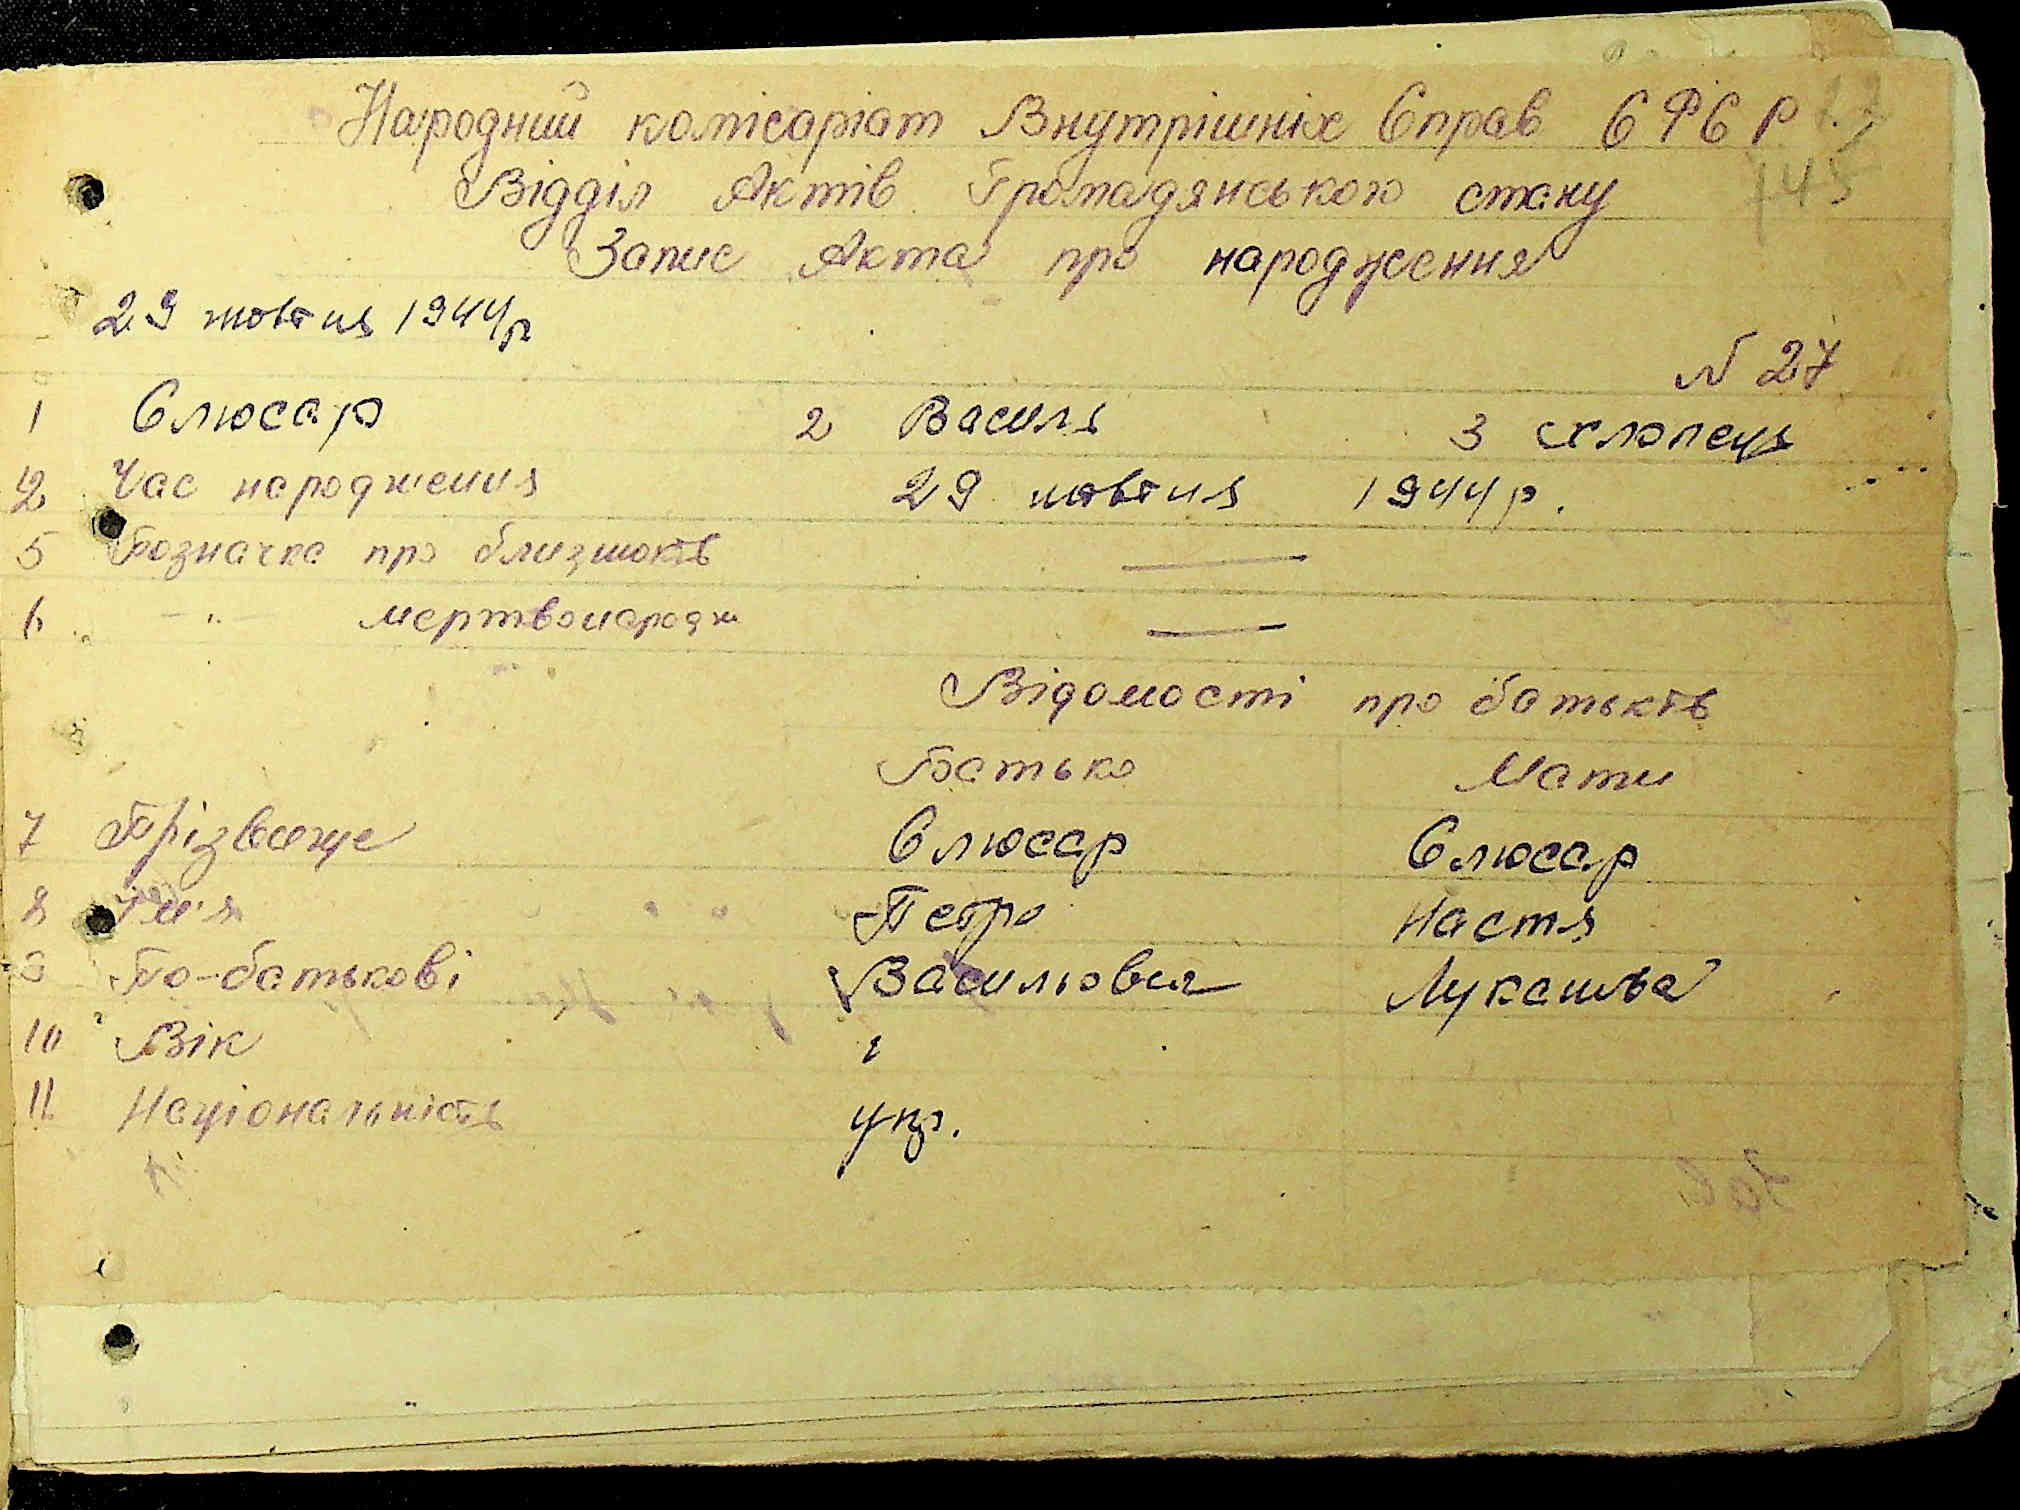 Народний комісаріат Внутрішніх Справ СРСР
145
Відділ Актів Громадянського стану
Запис Акта про народження
29 жовтня 1944р
N 27
1 Слюсар 2 Василь 3 хлопець
Час народження 29 жовтня 1944р.
5 Позначка про близнюків
6 -"- мертвонародж
Відомості про батьків
Батько Мати
7 Прізвище Слюсар Слюсар
8 Ім'я Петро Настя
9 По-батькові Василювич
10 Вік
11 Національність укр.